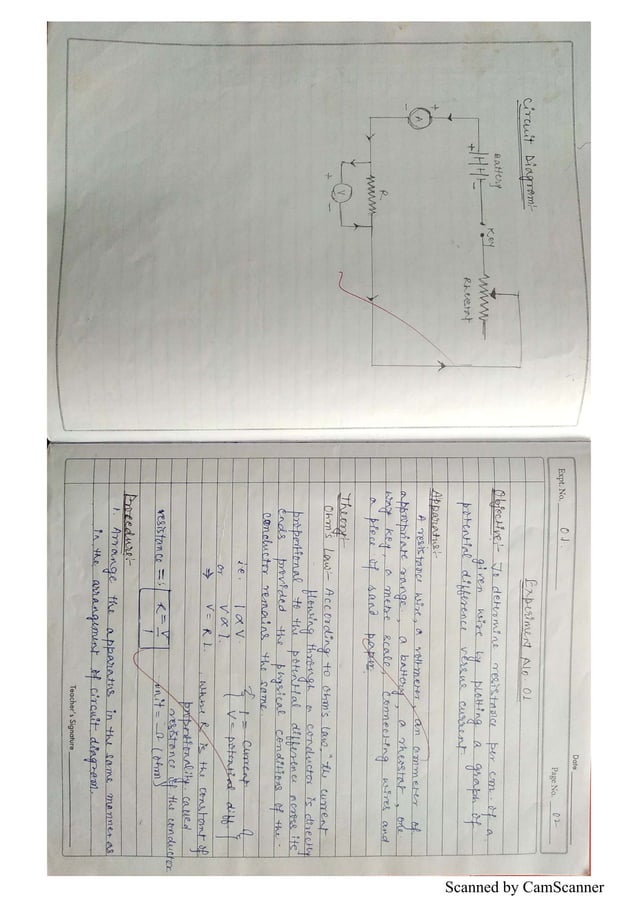 Circuit Diagram:-
Battery
Key
Rheostat
+
-
A
+
-
R
+
V
-
Expt. No. 01
Date
Page No. 02
Experiment No 01
Objective:- To determine resistance per cm. of a
given wire by plotting a graph of
potential difference versus current
Apparatus:-
A resistance wire, a voltmeter, an ammeter of
appropriate range, a battery, a rheostat, one
way key, a metre scale, connecting wires and
a piece of sand paper.
Theory:-
Ohm's Law:- According to Ohm's law "the current
flowing through a conductor is directly
proportional to the potential difference across its
ends provided the physical conditions of the-
conductor remains the same.
i.e. I α V. { I = Current &
or V α I. V = potential diff }
⇒ V = RI. where R is the constant of
proportionality called
resistance of the conductor
resistance = R = V/I unit = Ω (ohm)
Procedure:-
1. Arrange the apparatus in the same manner as
in the arrangement of circuit diagram.
Teacher's Signature
Scanned by CamScanner